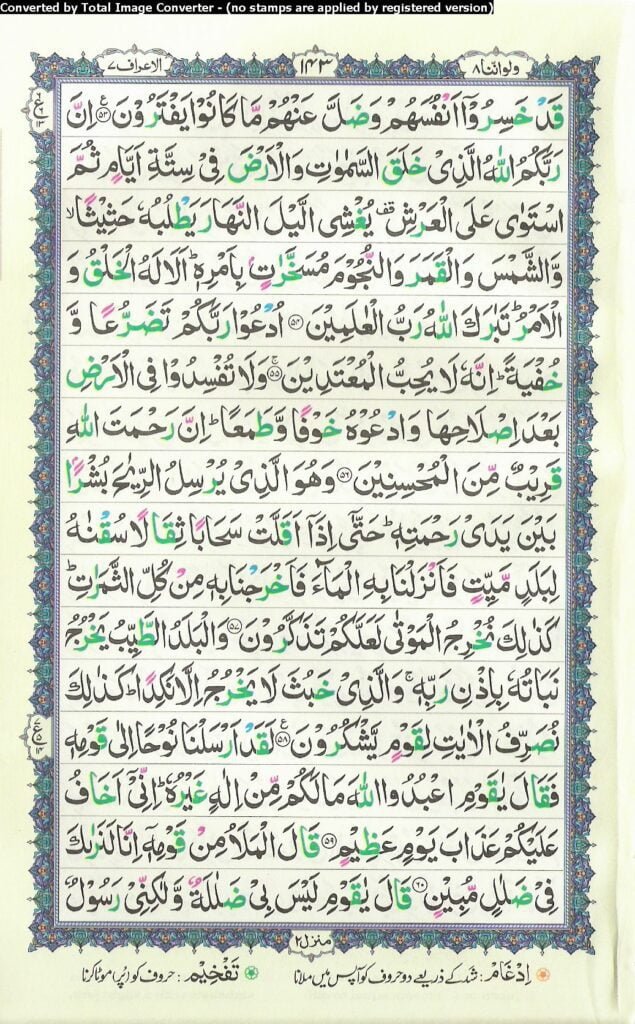 Converted by Total Image Converter - (no stamps are applied by registered version)
ولواننا ۸
۱۴۳
الاعراف ۷
قَدْ خَسِرُوْۤا اَنْفُسَهُمْ وَضَلَّ عَنْهُمْ مَّا كَانُوْا يَفْتَرُوْنَ ﴿۵۳﴾ اِنَّ
رَبَّكُمُ اللّٰهُ الَّذِىْ خَلَقَ السَّمٰوٰتِ وَالْاَرْضَ فِىْ سِتَّةِ اَيَّامٍ ثُمَّ
اسْتَوٰى عَلَى الْعَرْشِ يُغْشِى الَّيْلَ النَّهَارَ يَطْلُبُهٗ حَثِيْثًا ۙ
وَّالشَّمْسَ وَالْقَمَرَ وَالنُّجُوْمَ مُسَخَّرٰتٍۭ بِاَمْرِهٖ ؕ اَلَا لَهُ الْخَلْقُ وَ
الْاَمْرُ ؕ تَبٰرَكَ اللّٰهُ رَبُّ الْعٰلَمِيْنَ ﴿۵۴﴾ اُدْعُوْا رَبَّكُمْ تَضَرُّعًا وَّ
خُفْيَةً ؕ اِنَّهٗ لَا يُحِبُّ الْمُعْتَدِيْنَ ﴿۵۵﴾ۚ وَلَا تُفْسِدُوْا فِى الْاَرْضِ
بَعْدَ اِصْلَاحِهَا وَادْعُوْهُ خَوْفًا وَّطَمَعًا ؕ اِنَّ رَحْمَتَ اللّٰهِ
قَرِيْبٌ مِّنَ الْمُحْسِنِيْنَ ﴿۵۶﴾ وَهُوَ الَّذِىْ يُرْسِلُ الرِّيٰحَ بُشْرًۢا
بَيْنَ يَدَىْ رَحْمَتِهٖ ؕ حَتّٰۤى اِذَاۤ اَقَلَّتْ سَحَابًا ثِقَالًا سُقْنٰهُ
لِبَلَدٍ مَّيِّتٍ فَاَنْزَلْنَا بِهِ الْمَآءَ فَاَخْرَجْنَا بِهٖ مِنْ كُلِّ الثَّمَرٰتِ ؕ
كَذٰلِكَ نُخْرِجُ الْمَوْتٰى لَعَلَّكُمْ تَذَكَّرُوْنَ ﴿۵۷﴾ وَالْبَلَدُ الطَّيِّبُ يَخْرُجُ
نَبَاتُهٗ بِاِذْنِ رَبِّهٖ ۚ وَالَّذِىْ خَبُثَ لَا يَخْرُجُ اِلَّا نَكِدًا ؕ كَذٰلِكَ
نُصَرِّفُ الْاٰيٰتِ لِقَوْمٍ يَّشْكُرُوْنَ ﴿۵۸﴾ لَقَدْ اَرْسَلْنَا نُوْحًا اِلٰى قَوْمِهٖ
فَقَالَ يٰقَوْمِ اعْبُدُوا اللّٰهَ مَا لَكُمْ مِّنْ اِلٰهٍ غَيْرُهٗ ؕ اِنِّىْۤ اَخَافُ
عَلَيْكُمْ عَذَابَ يَوْمٍ عَظِيْمٍ ﴿۵۹﴾ قَالَ الْمَلَاُ مِنْ قَوْمِهٖۤ اِنَّا لَنَرٰىكَ
فِىْ ضَلٰلٍ مُّبِيْنٍ ﴿۶۰﴾ قَالَ يٰقَوْمِ لَيْسَ بِىْ ضَلٰلَةٌ وَّلٰكِنِّىْ رَسُوْلٌ
منزل ۲
اِدْغَام: شد کے ذریعے دو حروف کو آپس میں ملانا
تَفْخِيْم: حروف کو (پُر) موٹا کرنا